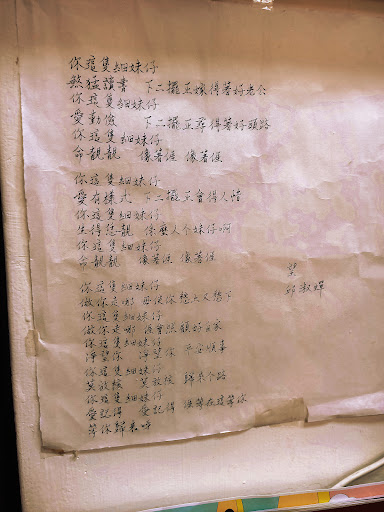 你這隻細妹仔
煞猛讀書 下二擺正嫁得著好老公
你這隻細妹仔
愛勤儉 下二擺正尋得著好頭路
你這隻細妹仔
命靚靚 像著𠊎 像著𠊎
你這隻細妹仔
愛有樣式 下二擺正會得人惜
你這隻細妹仔
生得恁靚 係麼人个妹仔啊
你這隻細妹仔
命靚靚 像著𠊎 像著𠊎
你這隻細妹仔
做你去哪
你這隻細妹仔
做你去哪 愛會照顧好自家
你這隻細妹仔
淨望你 淨望你 平安順事
你這隻細妹仔
莫放核 莫放核 歸來个路
你這隻細妹仔
愛記得 愛記得 等你
等你歸來呼
邱淑蟬